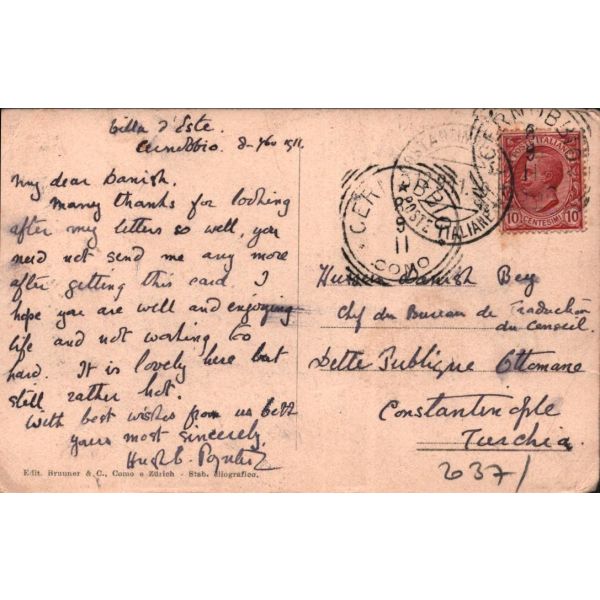 Villa d'Este.
Cernobbio. 8- 1911.
My dear Danish.
Many thanks for looking
after my letters so well, you
need not send me any more
after getting this card. I
hope you are well and enjoying
life and not working too
hard. It is lovely here but
still rather hot.
With best wishes from us both
yours most sincerely.
Hugh
Edit. Brunner & C., Como e Zürich - Stab. eliografico.
POSTE ITALIANE
10 CENTESIMI 10
CERNOBBIO
8
9
11
COMO
CERNOBBIO
COSTANTINOPOLI
POSTE ITALIANE
Danish Bey
Chef du Bureau de Traduction
du Conseil.
Dette Publique Ottomane
Constantinople
Turchia.
2637/